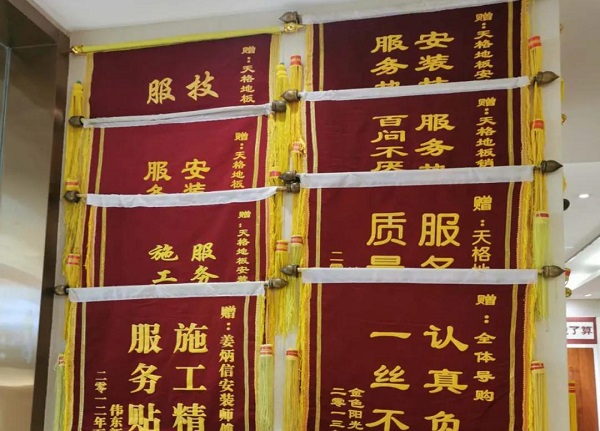 赠：天格地板
技
服
赠：天格地板安
安装
服务
赠：天格地板
安装
服务
赠：天格地板销
服务
百问不厌
赠：天格地板安装
服务
施工
赠：天格地
服务
质量
二
赠：姜炳信安装师傅
施工精
服务贴
二零一二年
伟东
赠：全体导购
认真负
一丝不
金色阳光
二零一三
了算